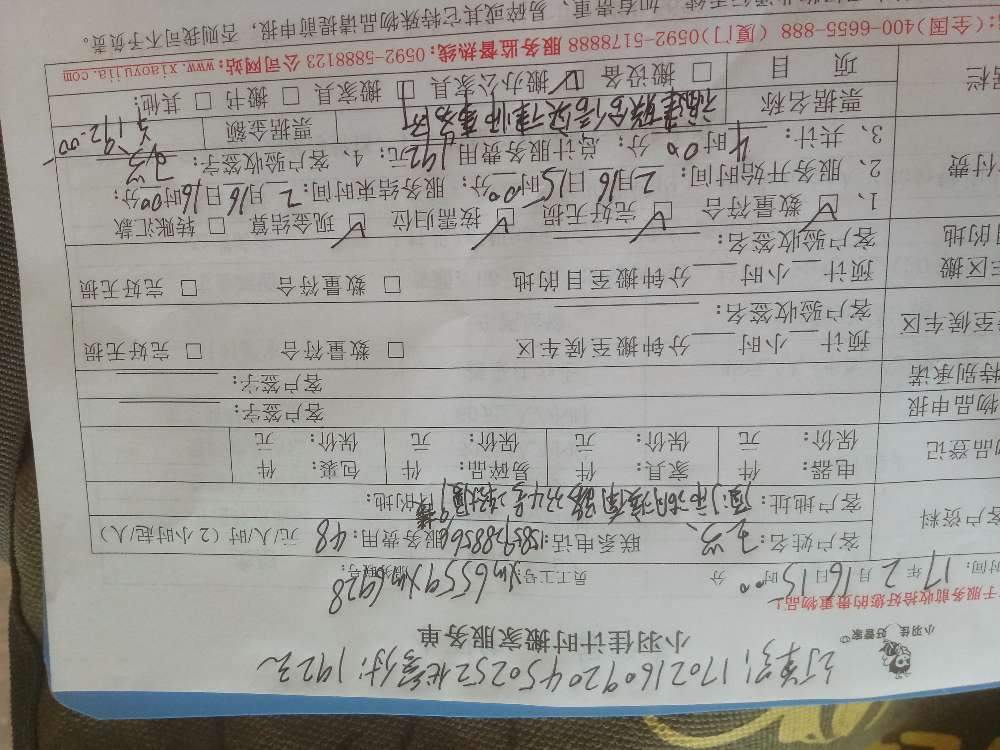 订单号:170216092045025​2 应付:192元
小羽佳 好管家
小羽佳计时搬家服务单
于服务前收拾好您的贵重物品!
时间: 17年2月16日15时00分 员工工号: Xm6559 Xm6928
客户资料
客户姓名: 联系电话: 服务费用: 48 元/人/时 (2小时起/人)
客户地址: 目的地:
物品登记
电器: 件 家具: 件 易碎品: 件 包装: 件
保价: 元 保价: 元 保价: 元 保价: 元
物品申报 客户签字:
特别承诺 客户签字:
至候车区
预计 小时 分钟搬至候车区 □ 数量符合 □ 完好无损
客户验收签名:
车区搬
目的地
预计 小时 分钟搬至目的地 □ 数量符合 □ 完好无损
客户验收签名:
付费
1、☑ 数量符合 ☑ 完好无损 ☑ 按需归位 ☑ 现金结算 □ 转账汇款
2、服务开始时间: 2月16日15时00分; 服务结束时间: 2月16日16时00分;
3、共计: 4时00分; 总计服务费用192元; 4、客户验收签字:
票据名称 福建联合信实律师事务所 票据金额 192.00
项 目 □ 搬设备 ☑ 搬办公家具 □ 搬家具 □ 搬书 □ 其他:
(全国)400-6655-888 (厦门)0592-5178888 服务监督热线: 0592-5888123 公司网站: www.xiaoyujia.com
如有贵重、易碎或其它特殊物品请提前申报, 否则我司不予负责。